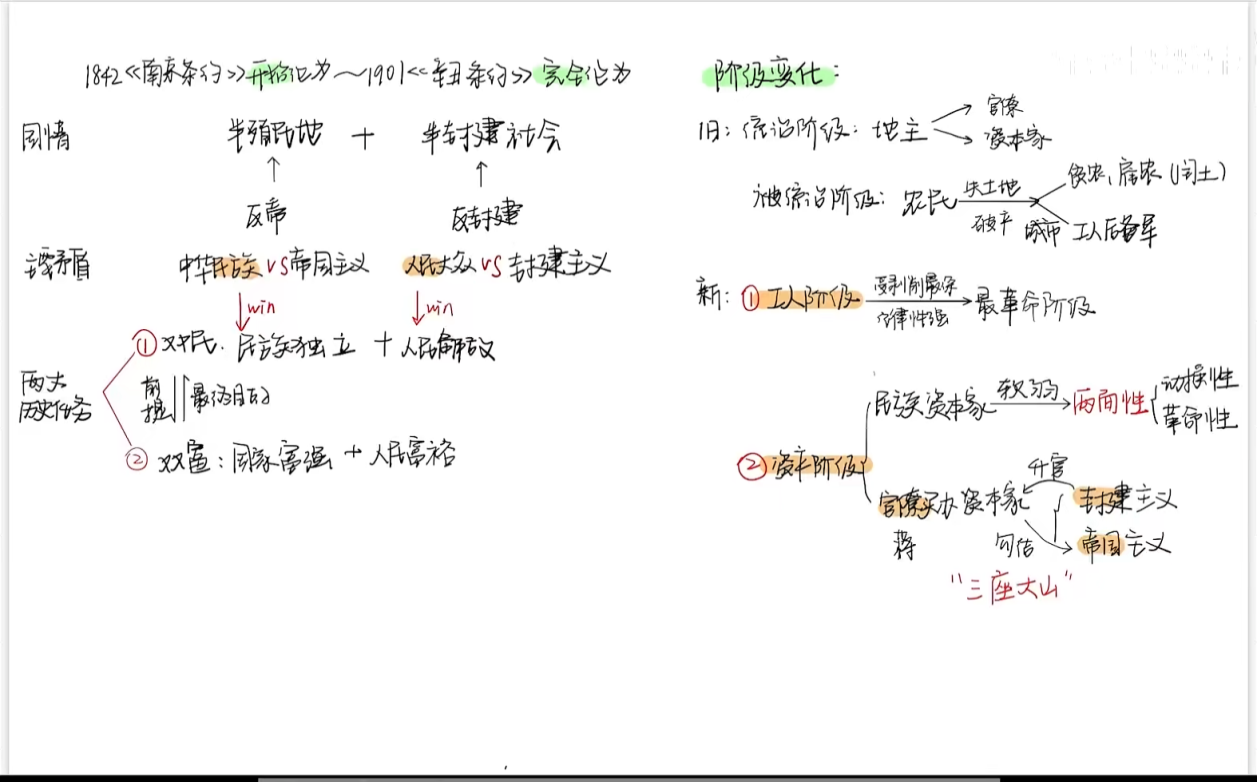 1842《南京条约》开始沦为～1901《辛丑条约》完全沦为
国情 半殖民地 + 半封建社会
↑ ↑
反帝 反封建
主要矛盾 中华民族 VS 帝国主义 人民大众 VS 封建主义
↓win ↓win
①对民: 民族独立 + 人民解放
两大历史任务
前提 最终目的
②双富: 国家富强 + 人民富裕
阶级变化:
旧: 统治阶级: 地主 → 官僚
→ 资本家
被统治阶级: 农民 失土地 破产 → 贫农、雇农(闰土)
城市 工人后备军
新: ①工人阶级 受剥削最深 纪律性强 → 最革命阶级
②资产阶级
民族资本家 软弱 → 两面性 { 动摇性
革命性
官僚买办资本家 升官 封建主义
蒋 勾结 → 帝国主义
"三座大山"